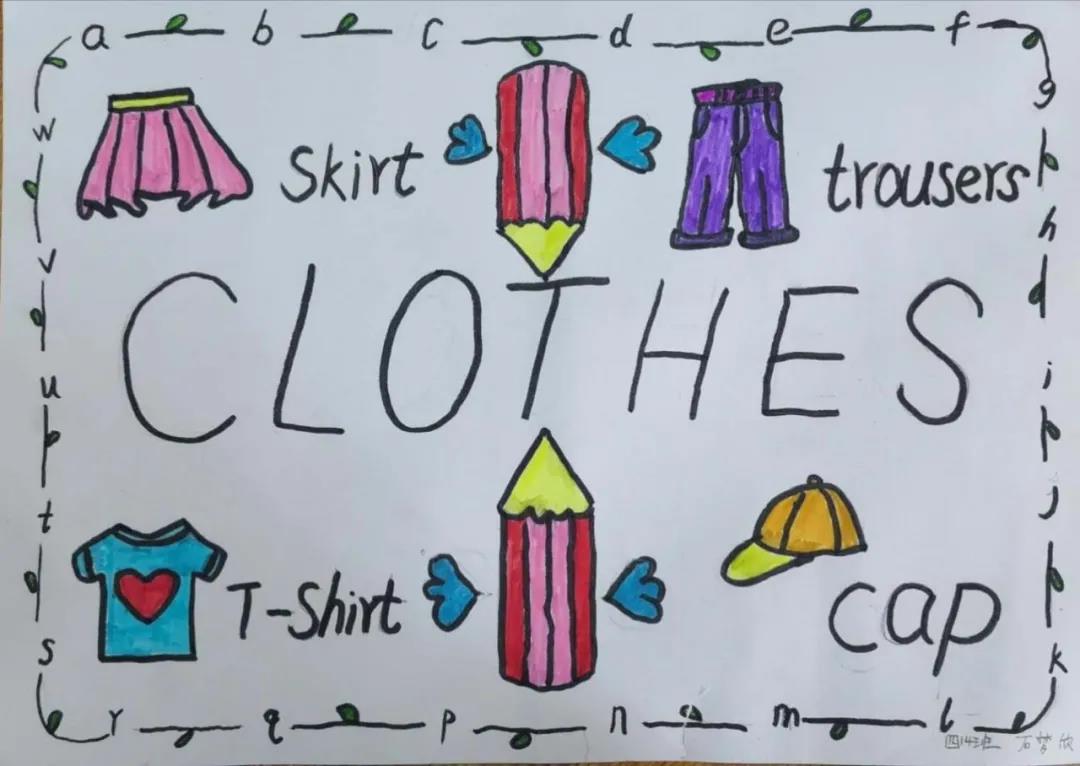 a b c d e f
g
h
i
j
k
l m n p q r
s
t
u
v
w
Skirt
trousers
CLOTHES
T-Shirt
cap
四14班 石梦欣